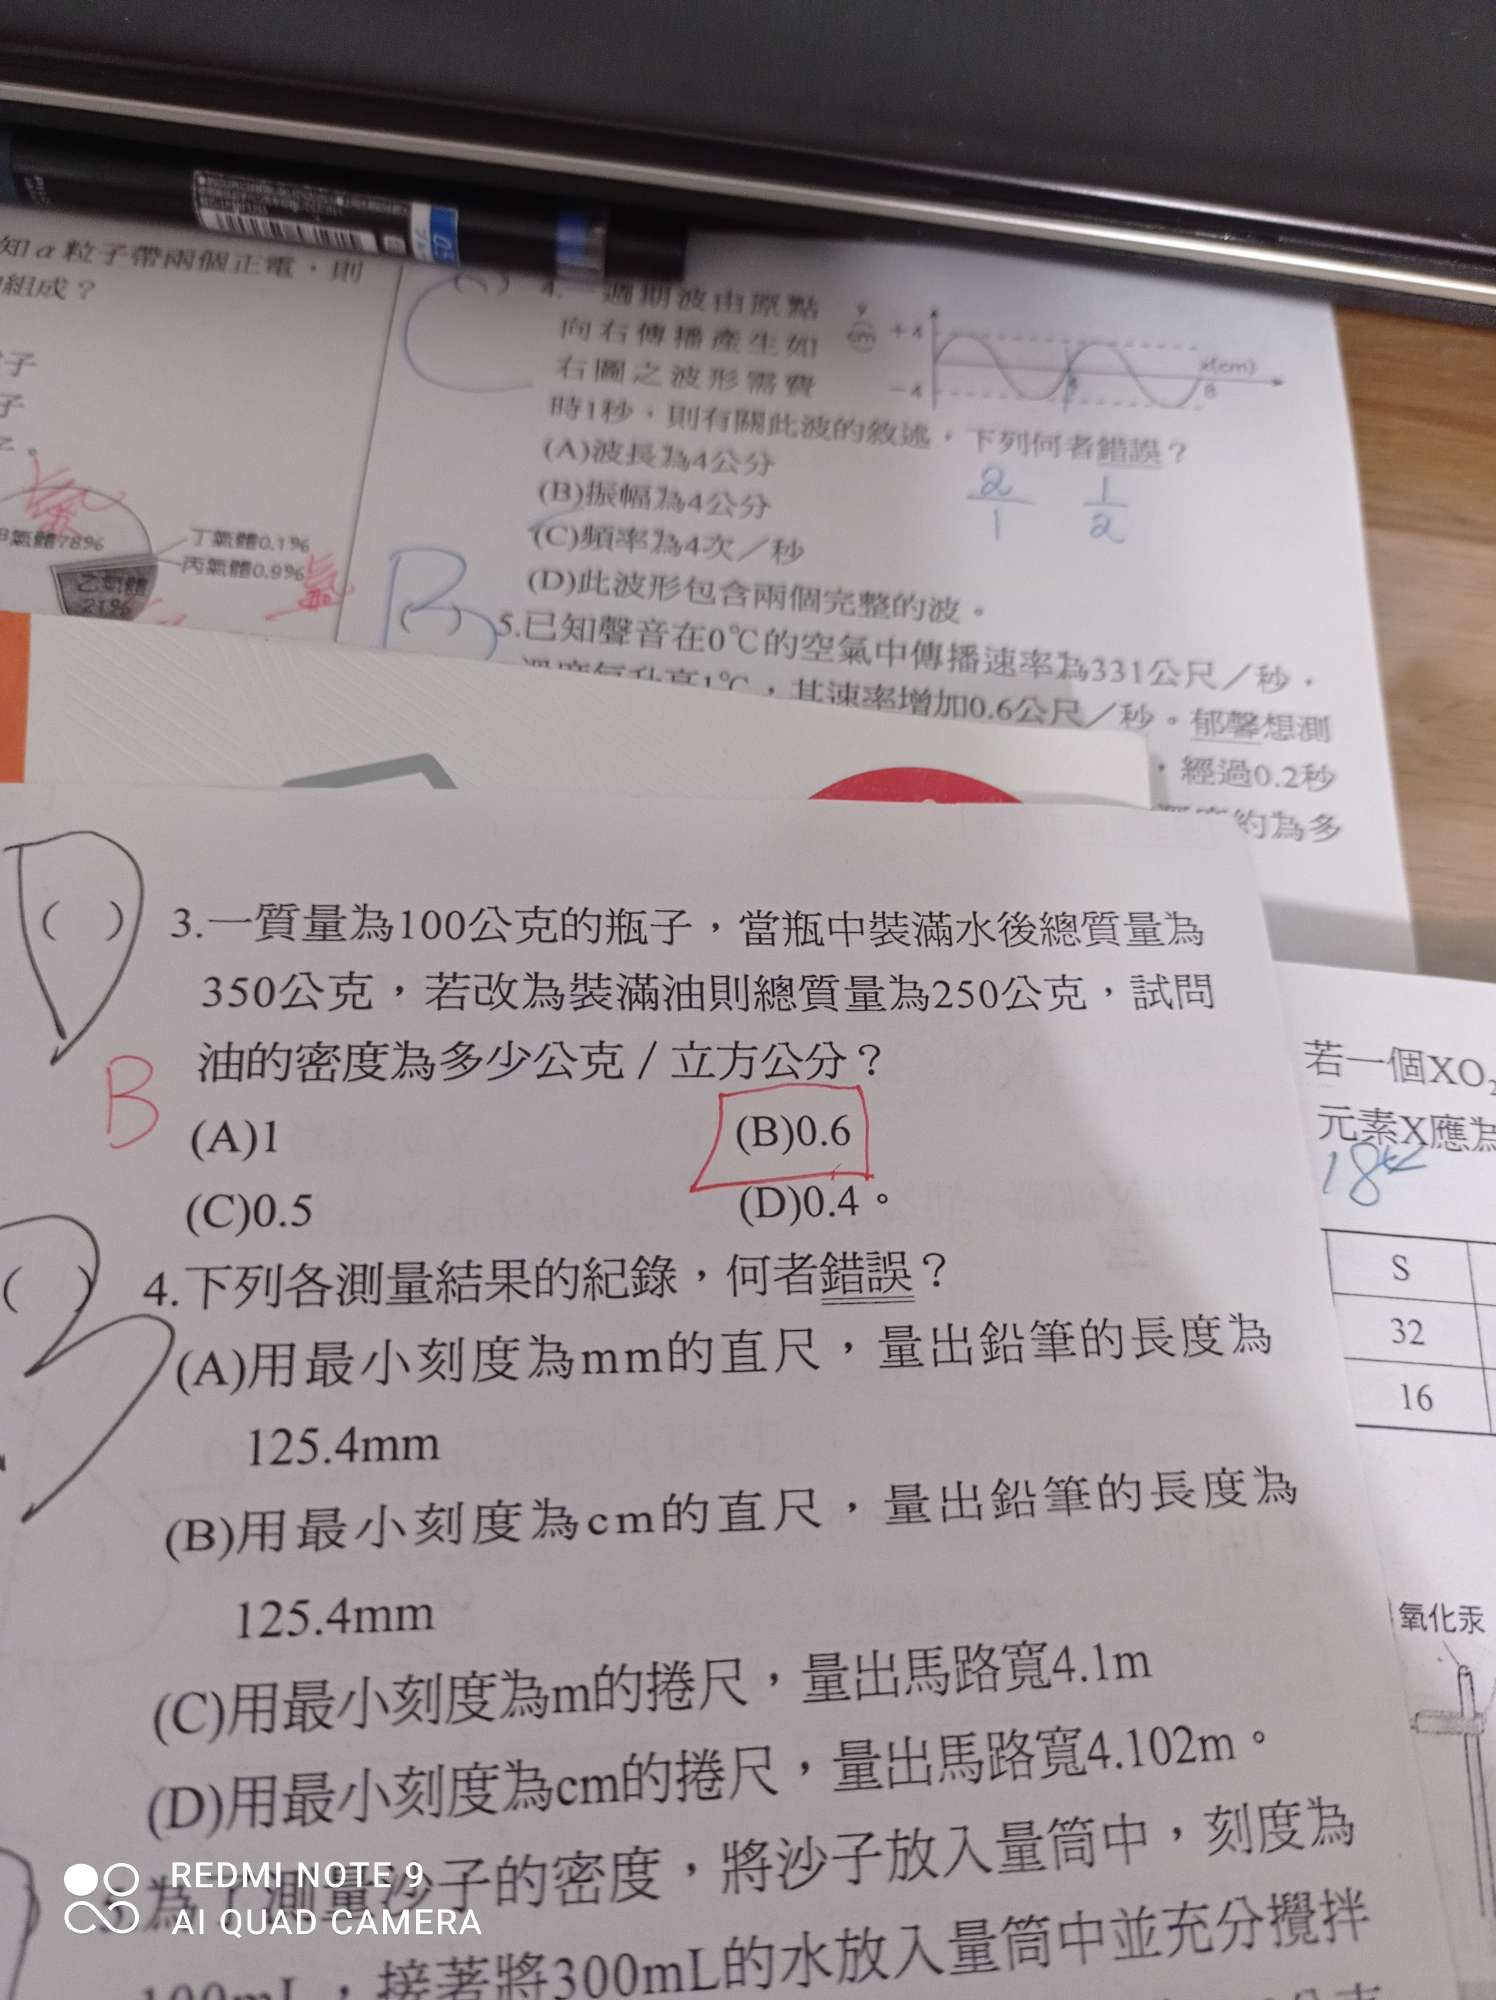 知α粒子帶兩個正電，則
組成？
子
子
氮
B氣體78%
丁氣體0.1%
丙氣體0.9%
乙氣體
21%
4.一週期波由原點
向右傳播產生如
右圖之波形需費
時1秒，則有關此波的敘述，下列何者錯誤？
y
(cm)
+4
-4
x(cm)
8
(A)波長為4公分
(B)振幅為4公分
(C)頻率為4次／秒
(D)此波形包含兩個完整的波。
2
1
1
2
B
( )
5.已知聲音在0℃的空氣中傳播速率為331公尺／秒，
溫度每升高1℃，其速率增加0.6公尺／秒。郁馨想測
，經過0.2秒
約為多
D
( )
3.一質量為100公克的瓶子，當瓶中裝滿水後總質量為
350公克，若改為裝滿油則總質量為250公克，試問
油的密度為多少公克／立方公分？
B
(A)1
(B)0.6
(C)0.5
(D)0.4。
( )
4.下列各測量結果的紀錄，何者錯誤？
(A)用最小刻度為mm的直尺，量出鉛筆的長度為
125.4mm
(B)用最小刻度為cm的直尺，量出鉛筆的長度為
125.4mm
(C)用最小刻度為m的捲尺，量出馬路寬4.1m
(D)用最小刻度為cm的捲尺，量出馬路寬4.102m。
5.為了測量沙子的密度，將沙子放入量筒中，刻度為
100mL，接著將300mL的水放入量筒中並充分攪拌
若一個XO2
元素X應為
S
32
16
氧化汞
REDMI NOTE 9
AI QUAD CAMERA